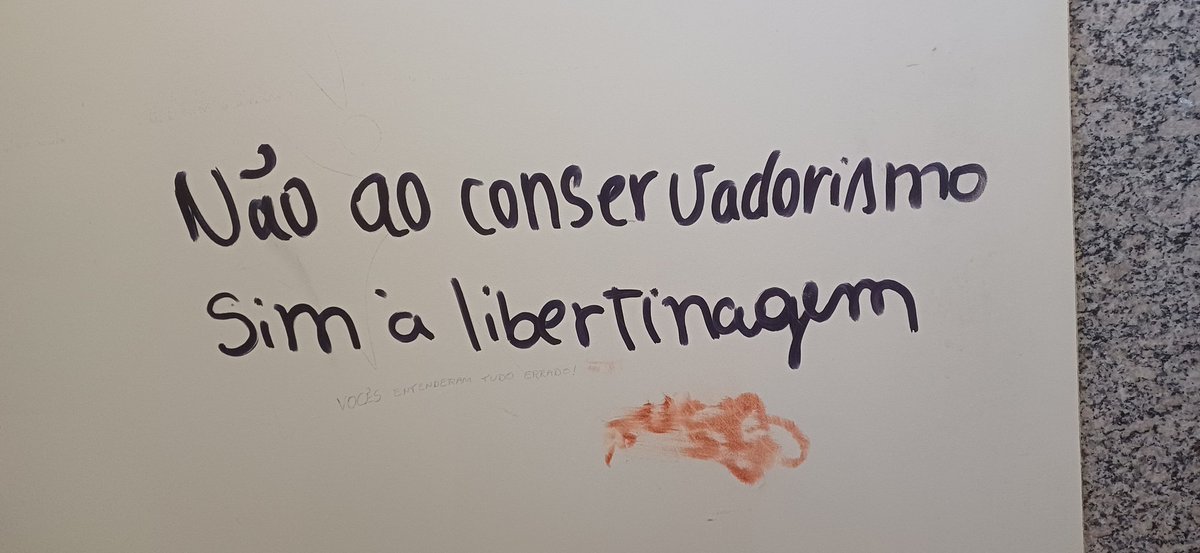 Não ao conservadorismo
Sim à libertinagem
VOCÊS ENTENDERAM TUDO ERRADO!